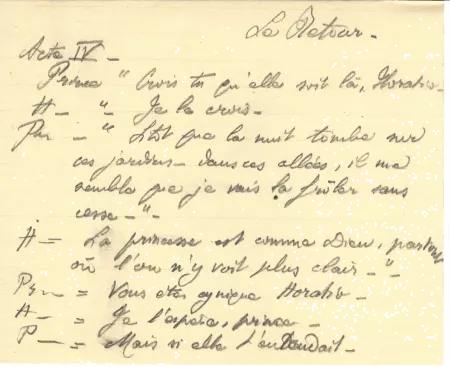 Le Retour -
Acte IV -
Prince " Crois tu qu'elle soit là, Horatio -
H - " - Je le crois -
Pr - " Sitôt que la nuit tombe sur
ces jardins - dans ces allées, il me
semble que je vais la frôler sans
cesse - " -
H = La princesse est comme Dieu, partout
où l'on n'y voit plus clair - " -
Pr - = Vous êtes cynique Horatio -
H - = Je l'espère, prince -
P - = Mais si elle t'entendait -